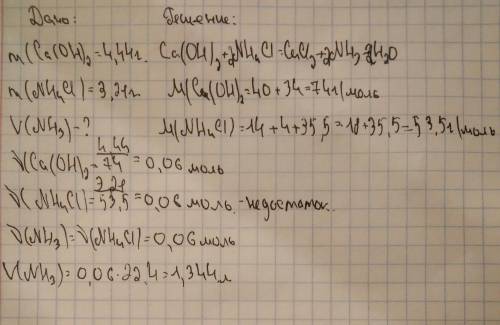 Дано: Решение:
m(Ca(OH)₂=4,44г. Ca(OH)₂+2NH₄Cl=CaCl₂+2NH₃+2H₂O
m(NH₄Cl)=3,21г. M(Ca(OH)₂=40+34=74г/моль
V(NH₃)-? M(NH₄Cl)=14+4+35,5=18+35,5=53,5г/моль
ν(Ca(OH)₂=4,44/74=0,06 моль
ν(NH₄Cl)=3,21/53,5=0,06 моль.-недостаток.
ν(NH₃)=ν(NH₄Cl)=0,06моль
V(NH₃)=0,06·22,4=1,344л